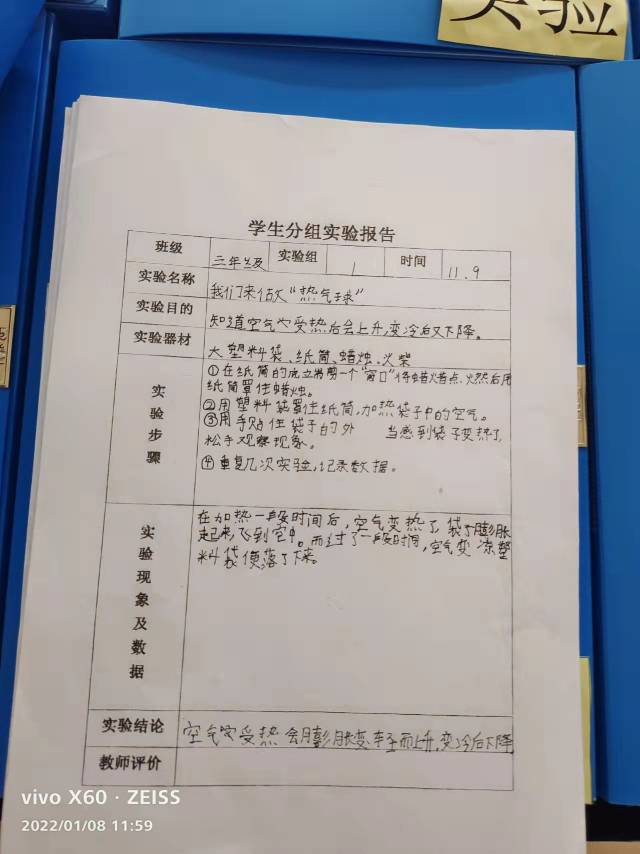 实验
学生分组实验报告
班级 三年级 实验组 1 时间 11.9
实验名称 我们来做“热气球”
实验目的 知道空气受热后会上升,变冷后又下降。
实验器材 大塑料袋、纸筒、蜡烛、火柴
实验步骤
①在纸筒的底立端剪一个“窗口”将蜡火昔点火然后用
纸筒罩住蜡烛。
②用塑料袋罩住纸筒,加热袋子中的空气。
③用手贴住袋子的外 当感到袋子变热了,
松手观察现象。
④重复几次实验,记录数据。
实验现象及数据
在加热一段时间后,空气变热了,袋子膨胀
起来,飞到空中。而过了一段时间,空气变冻塑
料袋便落了下来。
实验结论 空气受热会膨胀变轻而上升,变冷后下降
教师评价
vivo X60 · ZEISS
2022/01/08 11:59